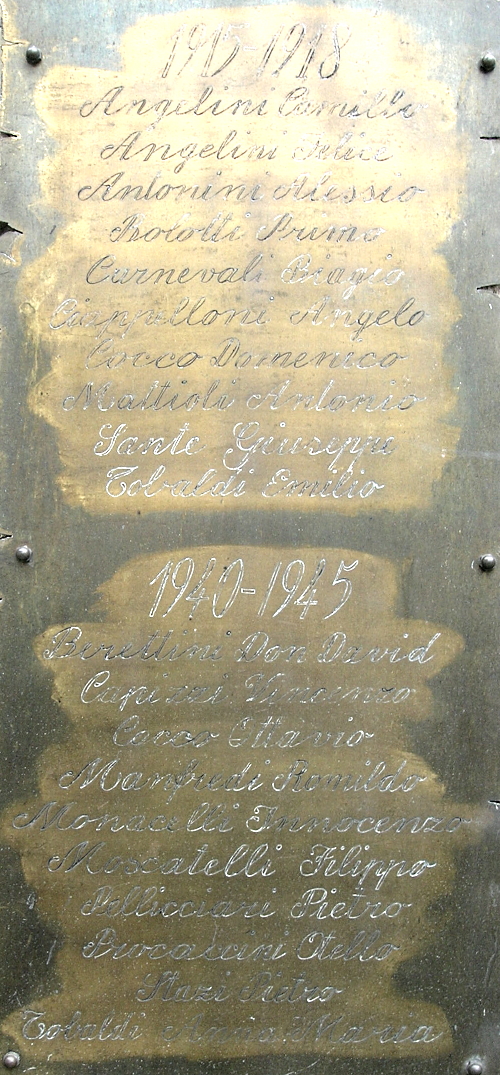 1915-1918
Angelini Camillo
Angelini Felice
Antonini Alessio
Bolotti Primo
Carnevali Biagio
Ciappelloni Angelo
Cocco Domenico
Mattioli Antonio
Sante Giuseppe
Tobaldi Emilio
1940-1945
Berettini Don David
Capizzi Vincenzo
Cocco Ottavio
Manfredi Romildo
Monacelli Innocenzo
Moscatelli Filippo
Pellicciari Pietro
Procaccini Otello
Stazi Pietro
Tobaldi Anna Maria